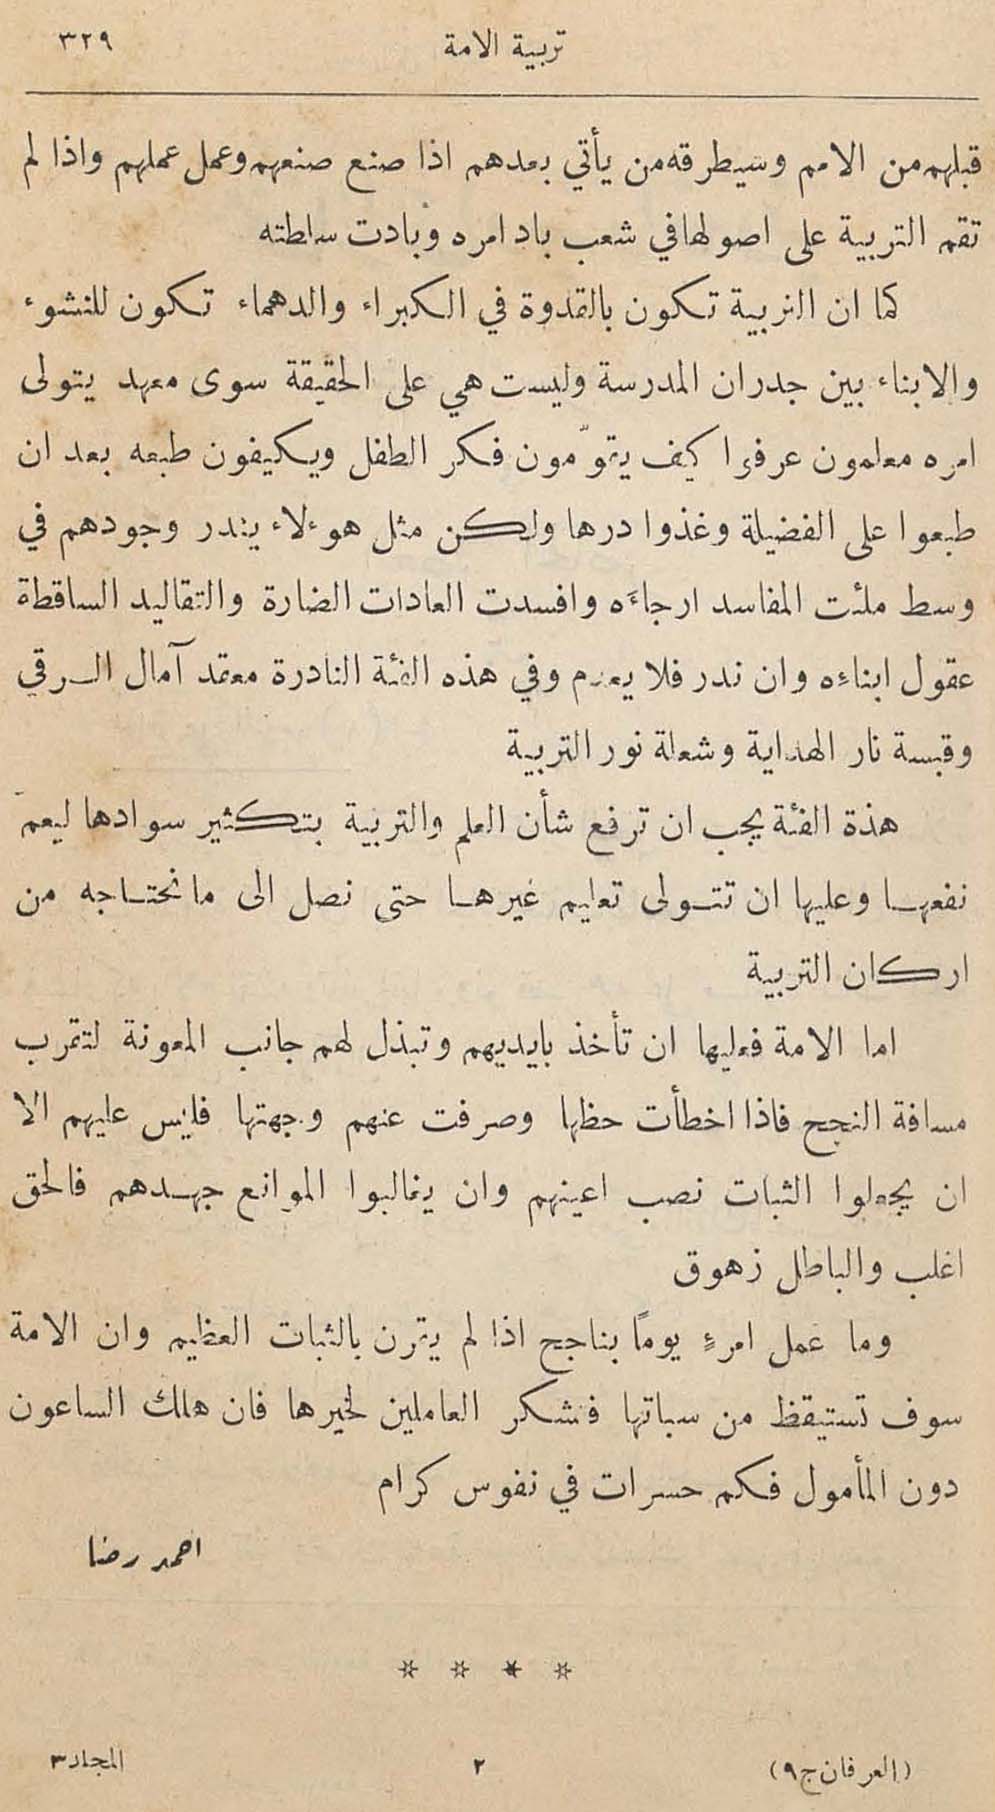 تربية الامة ٣٢٩
قبلهم من الامم وسيطرقه من يأتي بعدهم اذا صنع صنعهم وعمل عملهم واذا لم
تقم التربية على اصولها في شعب باد امره وبادت سلطته
كما ان التربية تكون بالقدوة في الكبراء والدهماء تكون للنشوء
والابناء بين جدران المدرسة وليست هي على الحقيقة سوى معهد يتولى
امره معلمون عرفوا كيف يقوّمون فكر الطفل ويكيفون طبعه بعد ان
طبعوا على الفضيلة وغذوا درها ولكن مثل هوءلاء يندر وجودهم في
وسط ملئت المفاسد ارجاءَه وافسدت العادات الضارة والتقاليد الساقطة
عقول ابناءِه وان ندر فلا يعدم وفي هذه الفئة النادرة معقد آمال الرقي
وقبسة نار الهداية وشعلة نور التربية
هذة الفئة يجب ان ترفع شأن العلم والتربية بتكثير سوادها ليعمّ
نفعها وعليها ان تتولى تعليم غيرها حتى نصل الى ما نحتاجه من
اركان التربية
اما الامة فعليها ان تأخذ بايديهم وتبذل لهم جانب المعونة لتقرب
مسافة النجح فاذا اخطأت حظها وصرفت عنهم وجهتها فليس عليهم الا
ان يجعلوا الثبات نصب اعينهم وان يغالبوا الموانع جهدهم فالحق
اغلب والباطل زهوق
وما عمل امرءٍ يوماً بناجح اذا لم يقرن بالثبات العظيم وان الامة
سوف تستيقظ من سباتها فتشكر العاملين لخيرها فان هلك الساعون
دون المأمول فكم حسرات في نفوس كرام
احمد رضا
(العرفان ج٩) ٢ المجلد٣